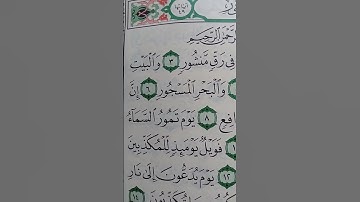 الرَّحِيمِ
فِي رَقٍّ مَّنشُورٍ ٣ وَالْبَيْتِ
وَالْبَحْرِ الْمَسْجُورِ ٦ إِنَّ
٨ يَوْمَ تَمُورُ السَّمَاءُ
فَوَيْلٌ يَوْمَئِذٍ لِّلْمُكَذِّبِينَ
١٢ يَوْمَ يُدَعُّونَ إِلَىٰ نَارِ
١٤